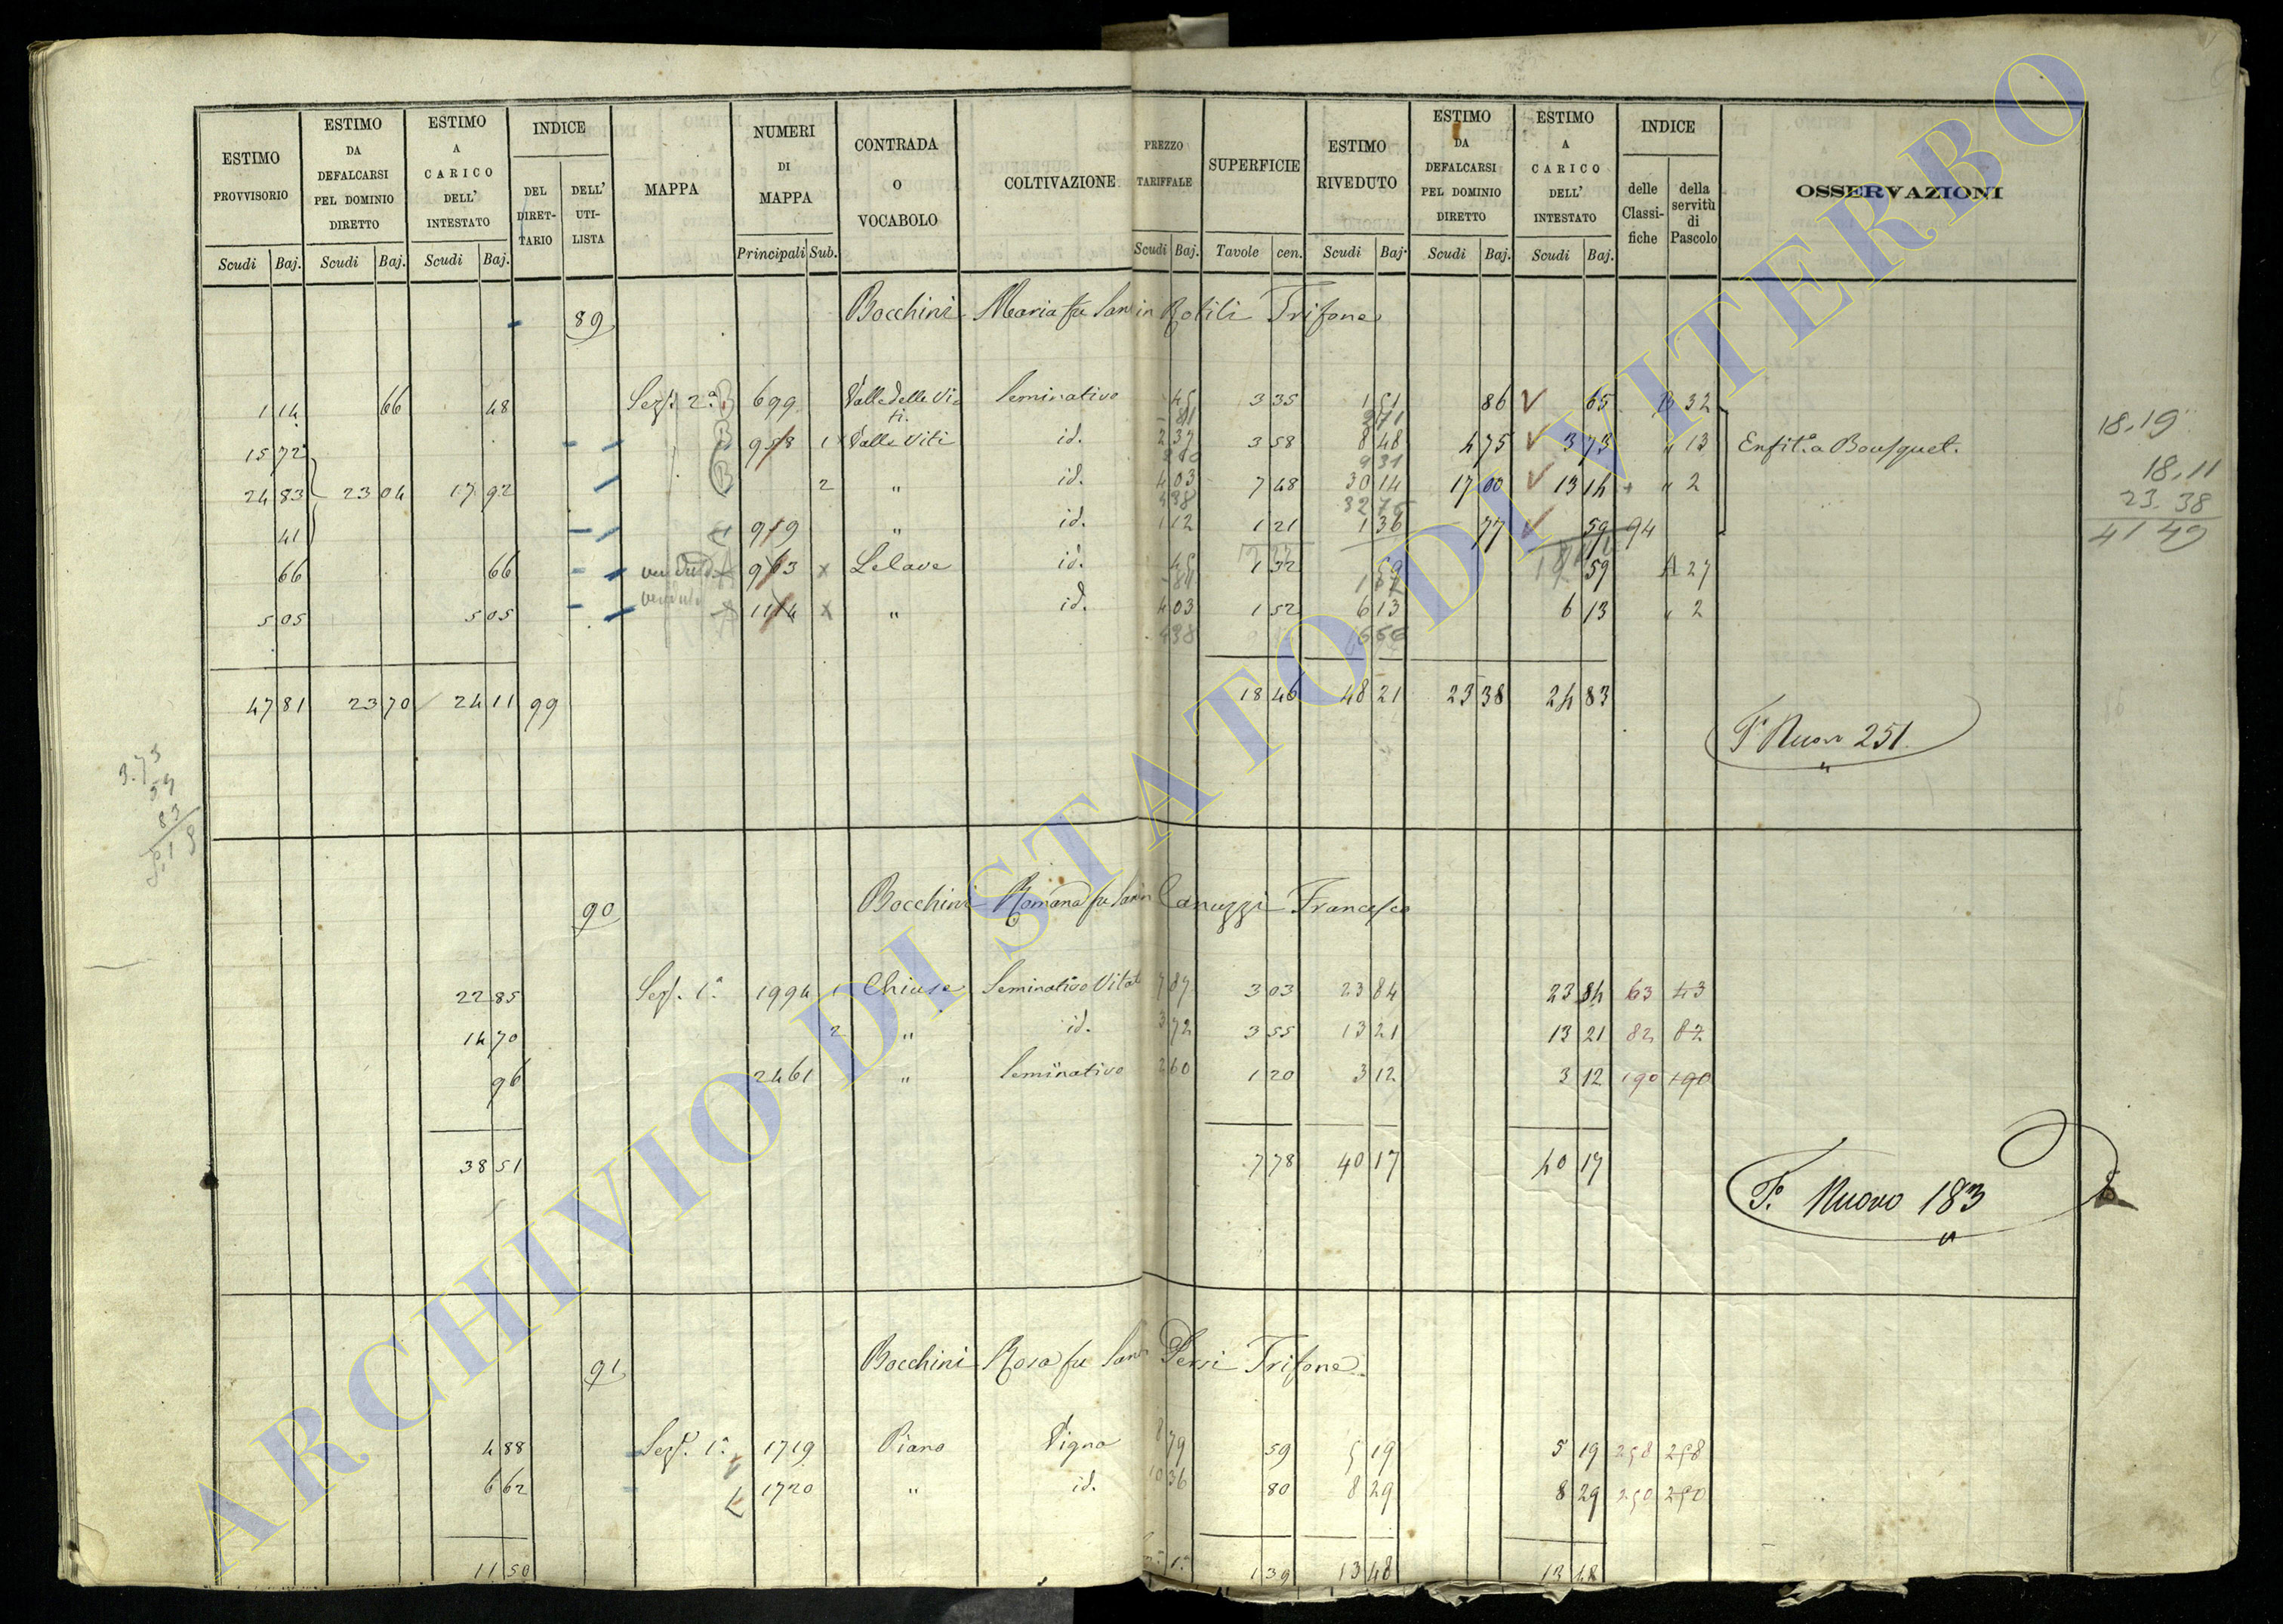 ESTIMO PROVVISORIO Scudi Baj.
ESTIMO DA DEFALCARSI PEL DOMINIO DIRETTO Scudi Baj.
ESTIMO A CARICO DELL' INTESTATO Scudi Baj.
INDICE DEL DIRETTARIO DELL' UTILISTA
MAPPA
NUMERI DI MAPPA Principali Sub.
CONTRADA O VOCABOLO
COLTIVAZIONE
PREZZO TARIFFALE Scudi Baj.
SUPERFICIE Tavole cen.
ESTIMO RIVEDUTO Scudi Baj.
ESTIMO DA DEFALCARSI PEL DOMINIO DIRETTO Scudi Baj.
ESTIMO A CARICO DELL' INTESTATO Scudi Baj.
INDICE delle Classifiche della servitù di Pascolo
OSSERVAZIONI
89 Bocchini Maria fu San in Rotili Trifone
1 14 66 48 Sez. 2ª B 699 Valle delle Viti Seminativo 45 3 35 1 51 86 65 B 32
81 2 71
15 72 B 958 1 Valle Viti id. 2 37 3 58 8 48 4 75 3 73 " 13 Enfit.a Bousquet.
9 31
24 83 23 04 17 92 B 2 " id. 4 03 7 48 30 14 17 00 13 14 " 2
4 38 32 76
41 959 " id. 1 12 1 21 1 36 77 59 94
66 66 venduto 963 x Le lave id. 45 1 32 59 59 A 27
5 05 5 05 venduto 1114 x " id. 4 03 1 52 6 13 6 13 " 2
4 38 6 66
47 81 23 70 24 11 99 18 46 48 21 23 38 24 83
F.º Nuovo 251.
18,19
18,11
23,38
41 49
3.73
59
83
5,18
90 Bocchini Romana fu San in Canuzzi Francesco
22 85 Sez. 1ª 1994 1 Chiuse Seminativo Vitat 7 87 3 03 23 84 23 84 63 43
14 70 2 " id. 3 72 3 55 13 21 13 21 82 82
96 2461 " Seminativo 2 60 1 20 3 12 3 12 190 190
38 51 7 78 40 17 40 17
F.º Nuovo 183
91 Bocchini Rosa fu San in Persi Trifone
4 88 Sez. 1ª 1719 Piano Vigna 8 79 59 5 19 5 19 258 258
6 62 1720 " id. 10 36 80 8 29 8 29 250 250
11 50 1 39 13 48 13 48
ARCHIVIO DI STATO DI VITERBO